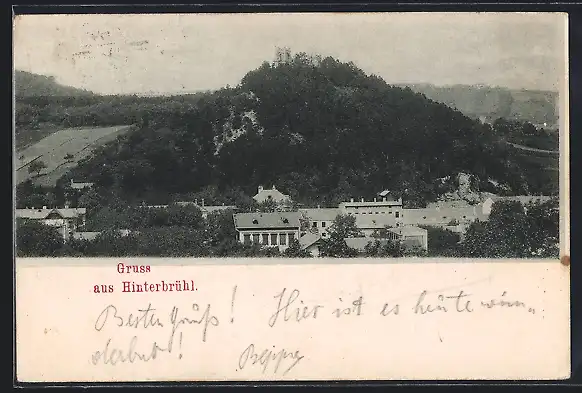 Gruss
aus Hinterbrühl.
Besten Gruß! Hier ist es heute wun-
derbar!
Beppre